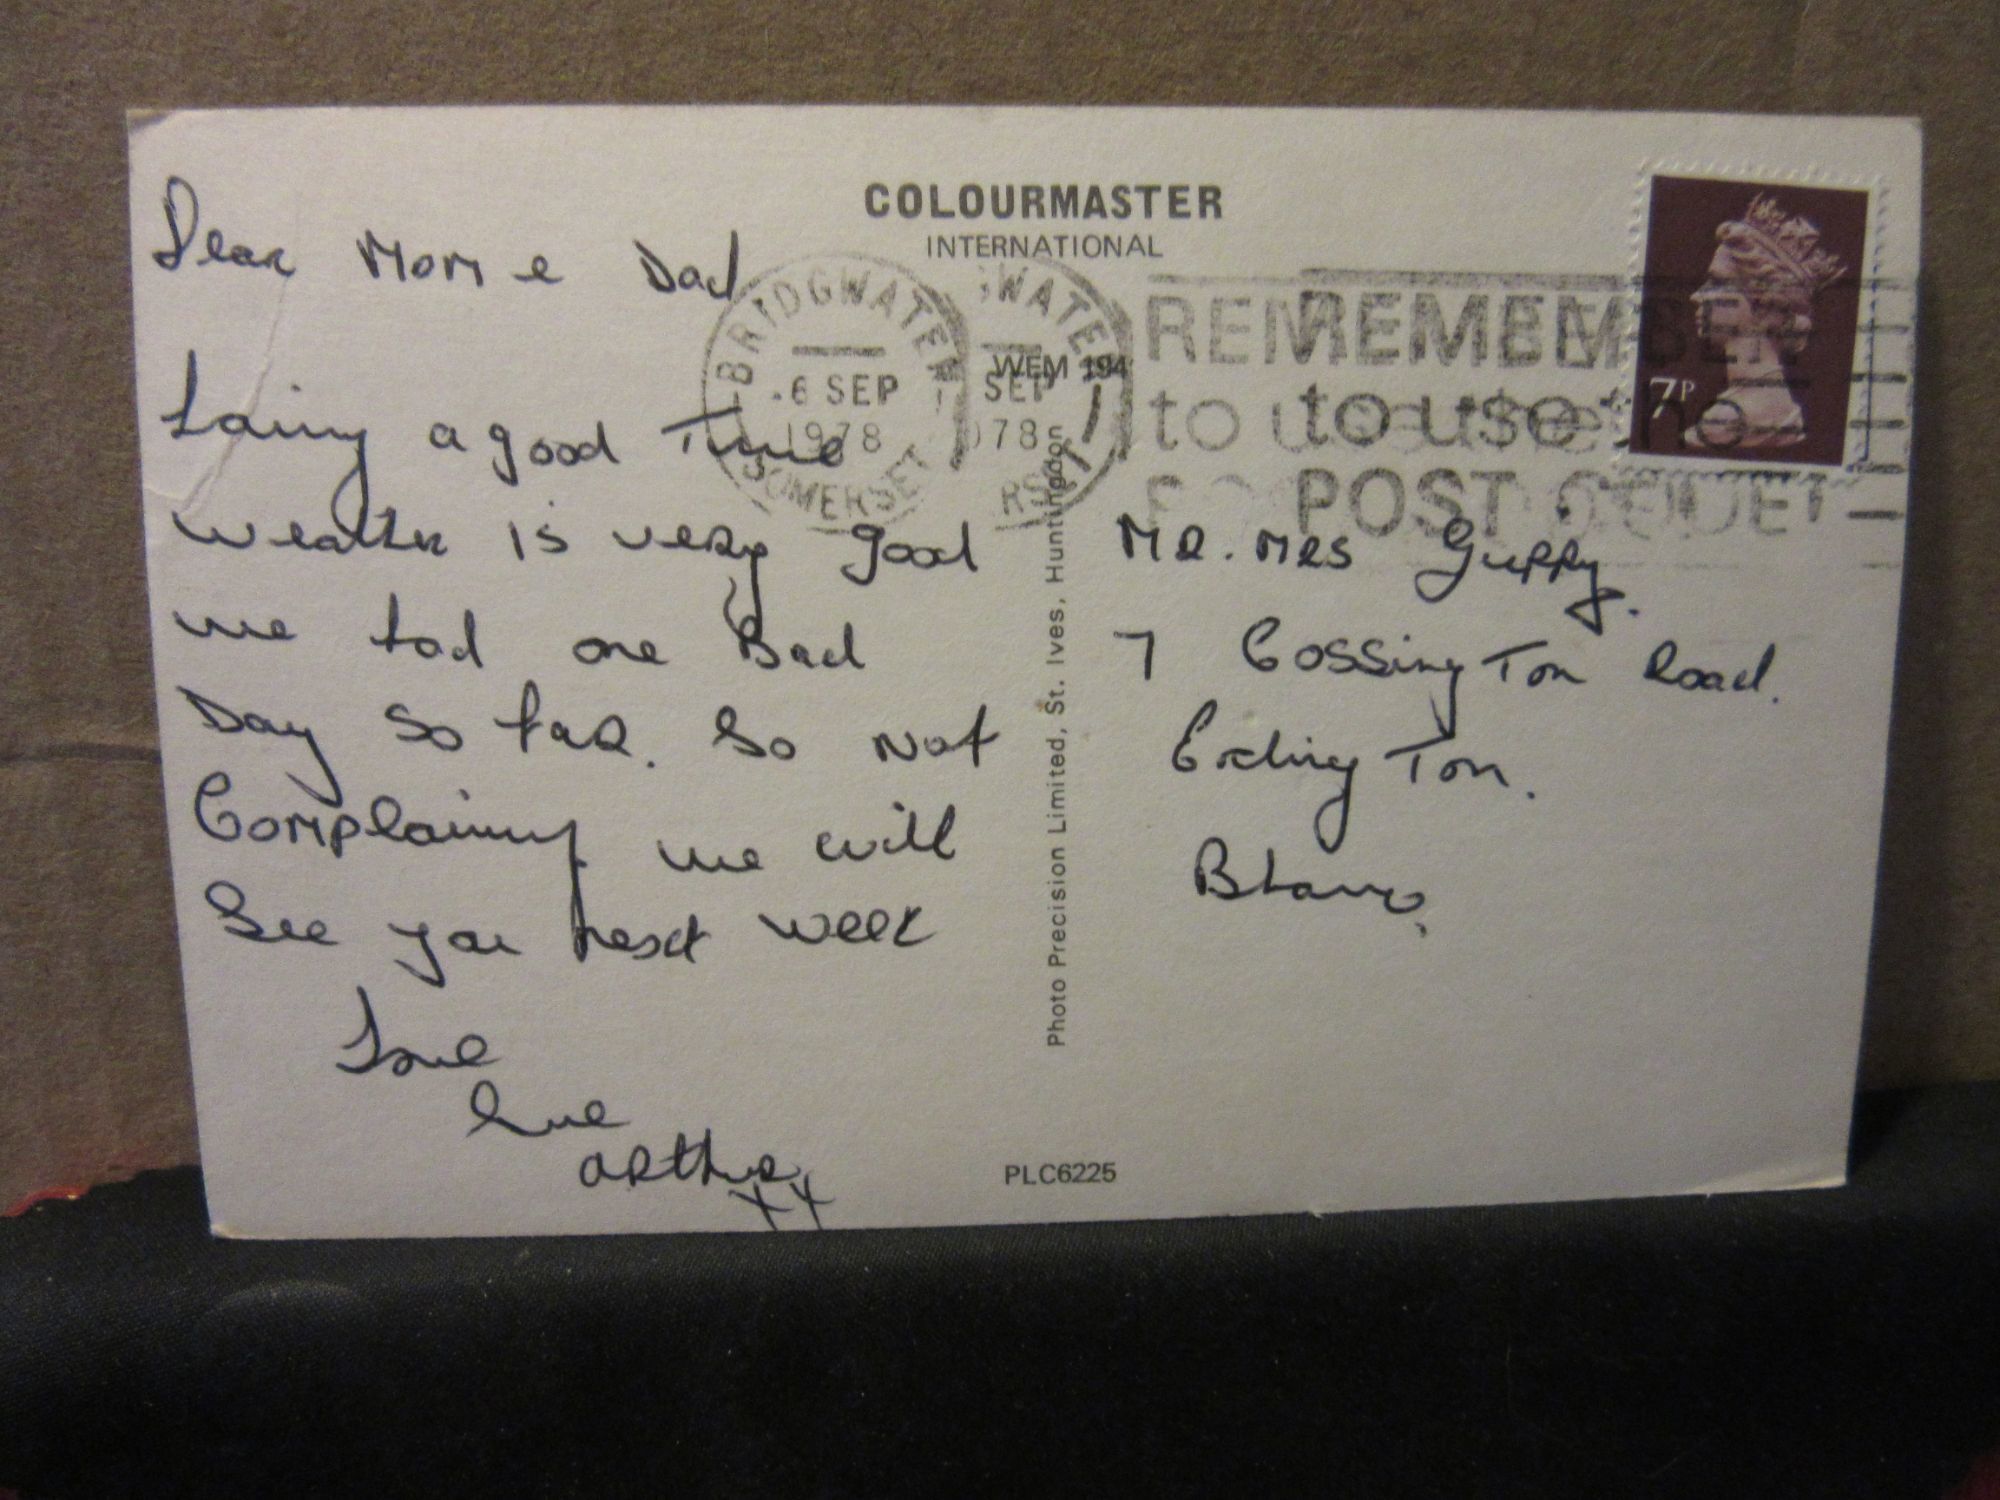 COLOURMASTER
INTERNATIONAL
Dear Mom e Dad
Having a good Time
weather is very good
we had one Bad
Day so far. So Not
Complaining we will
See you next week
Love
Sue
arthur
xx
BRIDGWATER
6 SEP
1978
SOMERSET
WATER
SEP
978
WEM 194
REMEMBER
to use the
POST CODE
7P
Mr. Mrs Guppy.
7 Cossington Road.
Erdington.
Bham.
Photo Precision Limited, St. Ives, Huntingdon
PLC6225